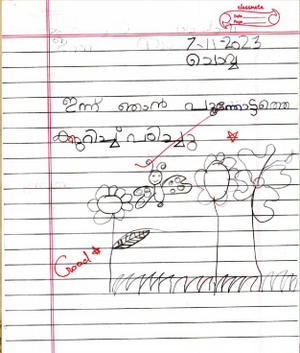 classmate
Date
Page
7-11-2023
ചൊവ്വ
ഇന്ന് ഞാൻ പൂന്തോട്ടത്തെ
കുറിച്ച് പഠിച്ചു
Good